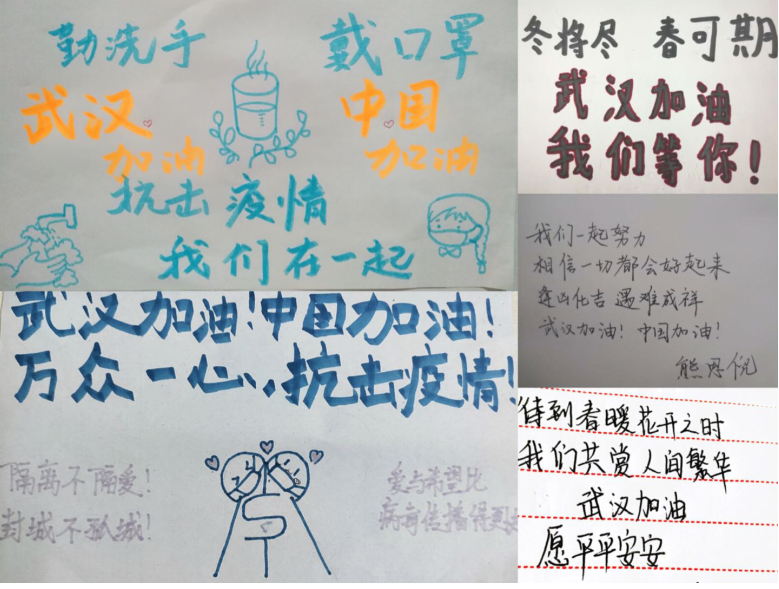 勤洗手 戴口罩
武汉 中国
加油 加油
抗击疫情
我们在一起
冬将尽 春可期
武汉加油
我们等你!
我们一起努力
相信一切都会好起来
逢凶化吉 遇难成祥
武汉加油! 中国加油!
武汉加油!中国加油!
万众一心..抗击疫情!
隔离不隔爱!
封城不孤城!
爱与希望比
病毒传播得更
待到春暖花开之时
我们共赏人间繁华
武汉加油
愿平平安安